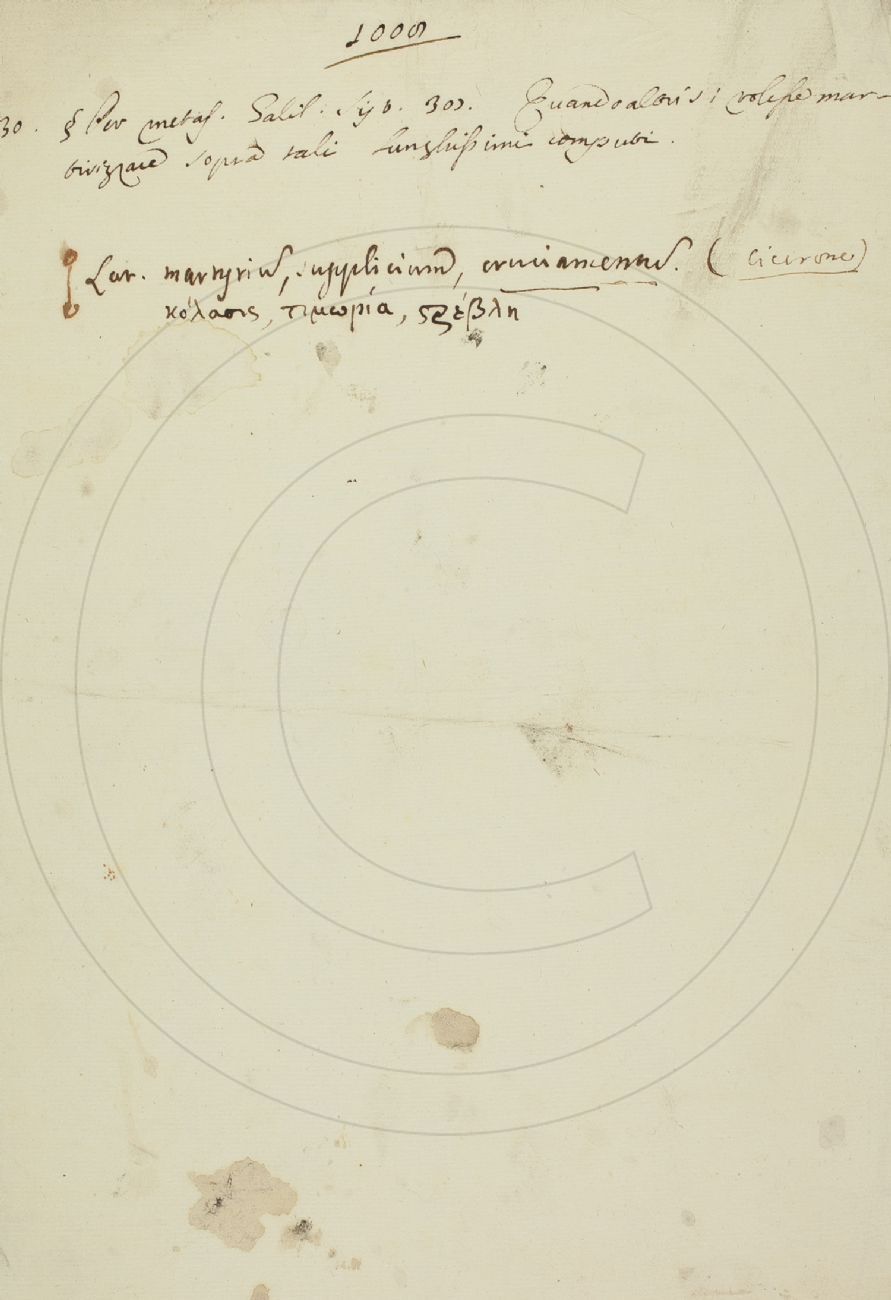 1008
30. § Per metaf. Galil. Sist. 302. Quando altri si volesse mar-
tirizzare sopra tali lunghissimi computi.
Lat. martyrium, supplicium, cruciamentum. (Cicerone)
κόλασις, τιμωρία, στρέβλη